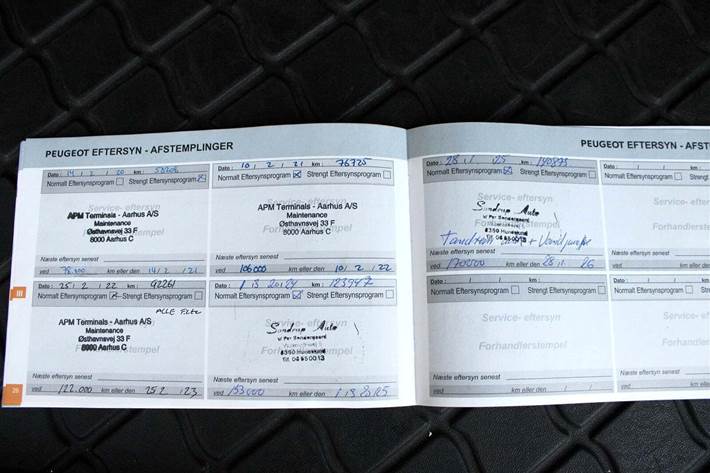 PEUGEOT EFTERSYN - AFSTEMPLINGER
Dato: 14 / 2 / 20 km:
Normalt Eftersynsprogram Strengt Eftersynsprogram
Service- eftersyn
APM Terminals - Aarhus A/S
Maintenance
Østhavnsvej 33 F
8000 Aarhus C
Næste eftersyn senest
ved km eller den 14 / 2 / 21
Dato: 10 / 2 / 21 km: 76725
Normalt Eftersynsprogram Strengt Eftersynsprogram
APM Terminals - Aarhus A/S
Maintenance
Østhavnsvej 33 F
8000 Aarhus C
Næste eftersyn senest
ved 106000 km eller den 10 / 2 / 22
III
Dato: 25 / 2 / 22 km: 92261
Normalt Eftersynsprogram Strengt Eftersynsprogram
ALLE Filtre
APM Terminals - Aarhus A/S
Maintenance
Østhavnsvej 33 F
8000 Aarhus C
Forhandlerstempel
Næste eftersyn senest
ved 122.000 km eller den 25 / 2 / 23
Dato: km: 123947
Normalt Eftersynsprogram Strengt Eftersynsprogram
Service- eftersyn
Sindrup Auto
v/ Per Søndergaard
8350 Hundslund
Forhandlerstempel
Næste eftersyn senest
ved 153000 km eller den
20
PEUGEOT EFTERSYN - AFST
Dato: 28 / 1 / 25 km: 140873
Normalt Eftersynsprogram Strengt Eftersynsprogram
Service- eftersyn
Sindrup Auto
v/ Per Søndergaard
8350 Hundslund
Tandrem + Vandpumpe
Næste eftersyn senest
ved 170000 km eller den 28 / 1 / 26
Dato: / / km:
Normalt Eftersynsprogram Strengt Eftersynsp
Service- e
Forhandler
Næste eftersyn senest
ved km eller den
Dato: / / km:
Normalt Eftersynsprogram Strengt Eftersynsprogram
Service- eftersyn
Forhandlerstempel
Næste eftersyn senest
ved km eller den / /
Dato: / / km:
Normalt Eftersynsprogram Strengt Eftersynsp
Service- e
Forhandler
Næste eftersyn senest
ved km eller den